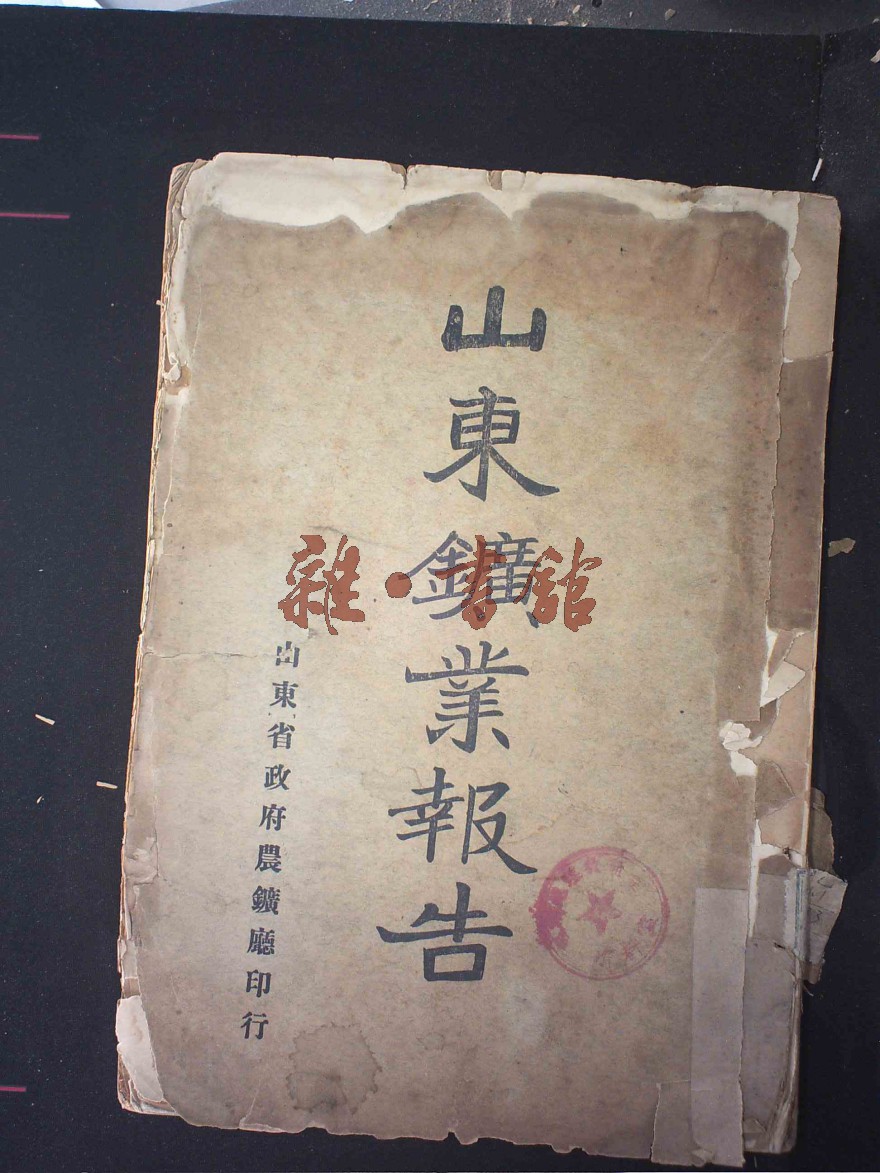 山東鑛業報告
山東省政府農鑛廳印行
雜·書館